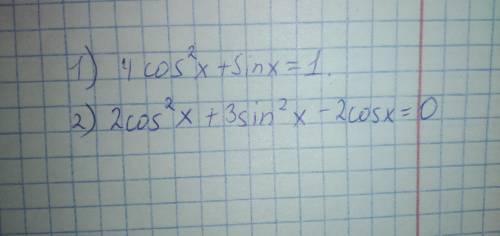 1) 4 cos²x + sinx = 1.
2) 2cos²x + 3sin²x - 2cosx = 0